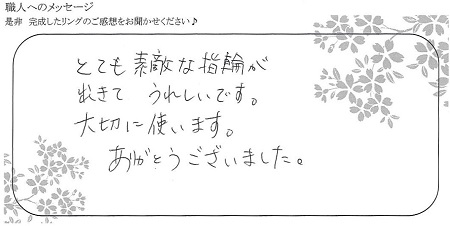 職人へのメッセージ
是非 完成したリングのご感想をお聞かせください♪
とても素敵な指輪が
出きて うれしいです。
大切に使います。
ありがとうございました。